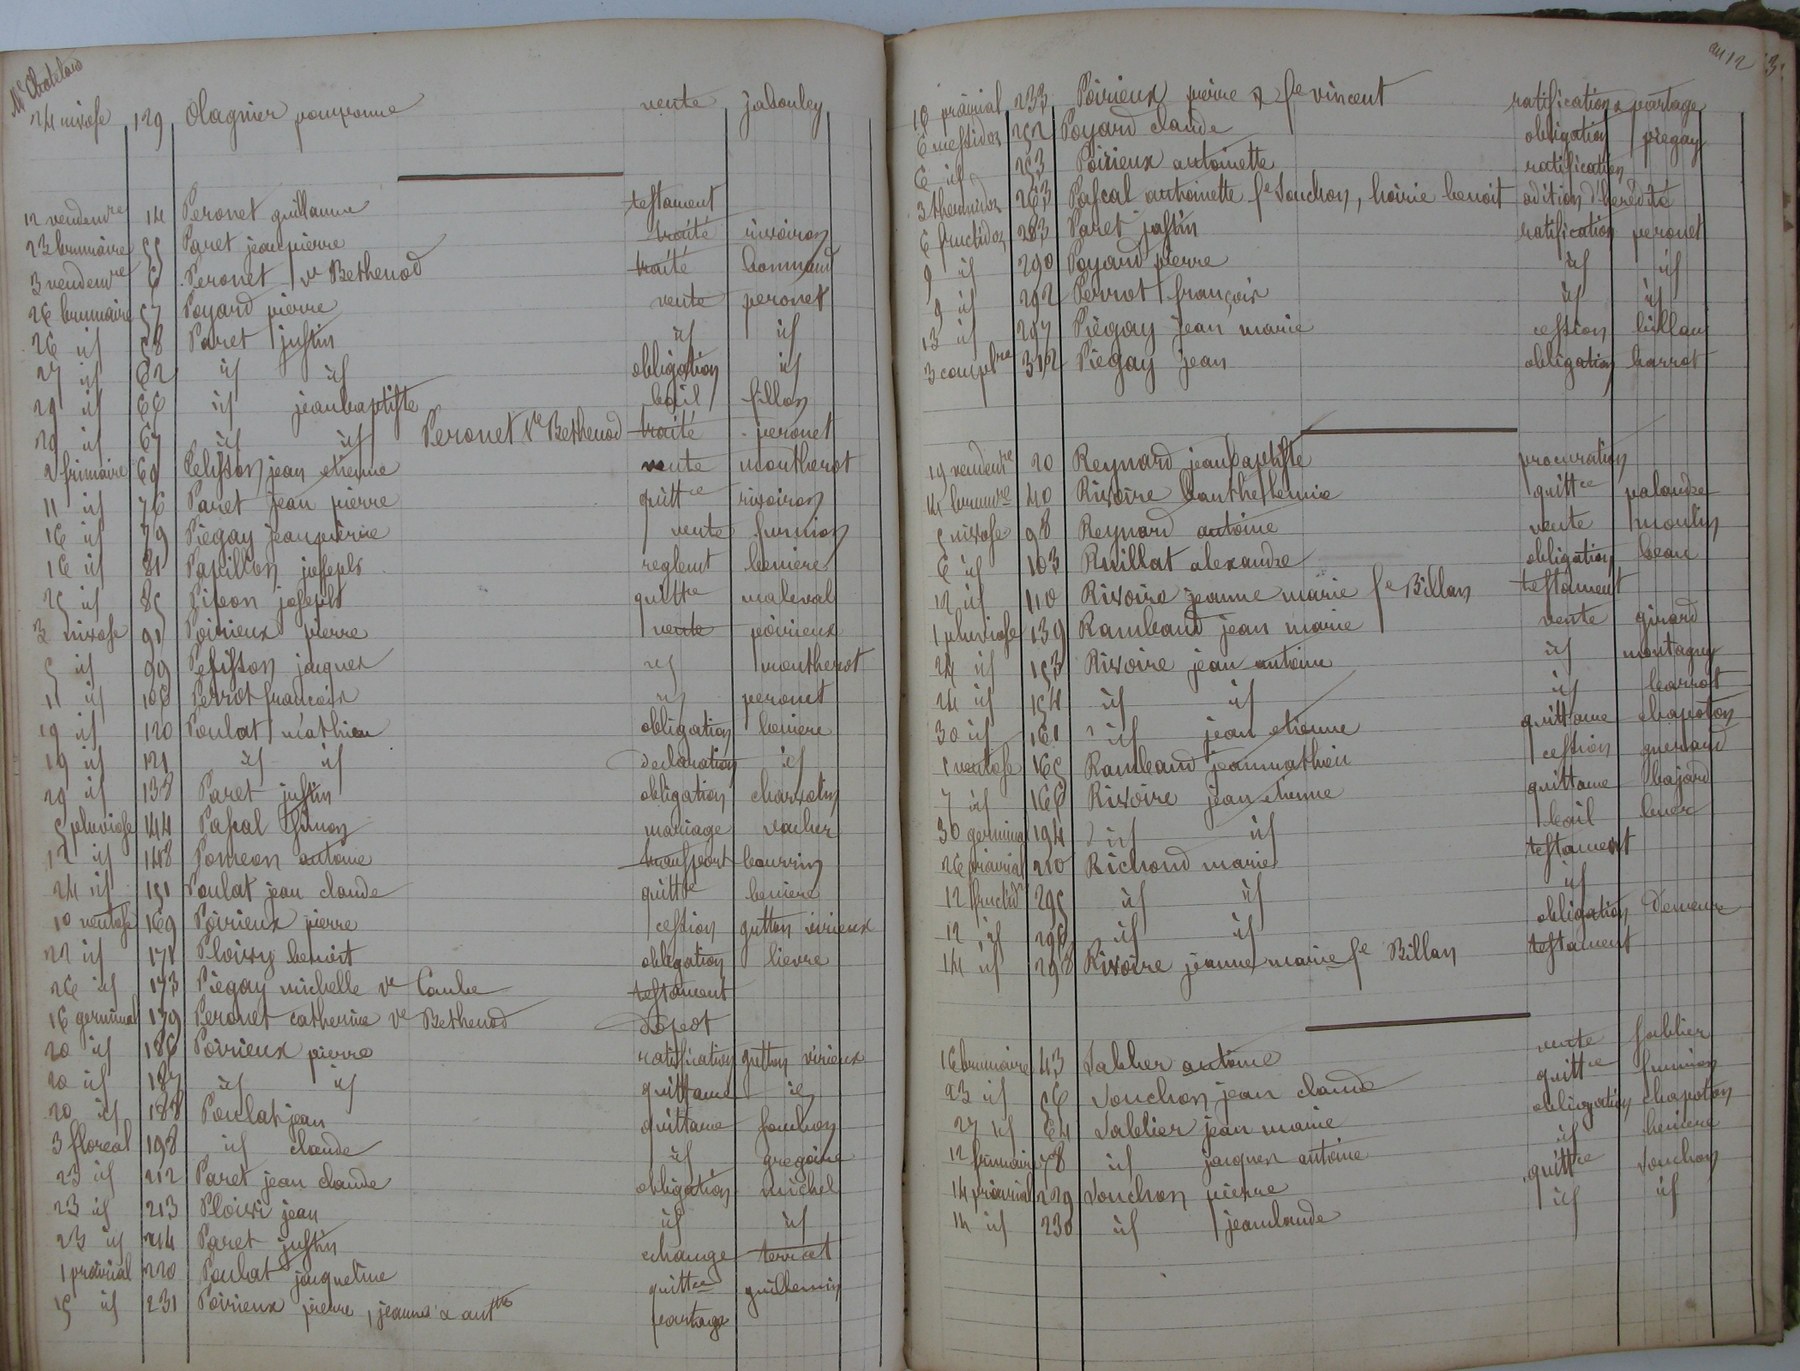 Me Chatelard
24 nivose 129 Olagnier pouponne vente Jabouley
12 vendemre 14 Peronet guillaume testament
23 brumaire 55 Paret jean pierre traité rivoiron
3 vendemre 6 Peronet ve Bethenod traité bonnard
26 brumaire 57 Poyard pierre vente peronet
26 id 58 Paret justin id id
27 id 62 id id obligation id
29 id 66 id jean baptiste bail fillon
29 id 67 id id Peronet ve Bethenod traité peronet
2 frimaire 69 Pelisson jean etienne vente montherot
11 id 76 Paret jean pierre quittce rivoiron
16 id 79 Piégay jean pierre vente furnion
16 id 81 Papillon joseph reglemt beniere
25 id 85 Pipeon joseph quittce maleval
3 nivose 91 Poirieux pierre vente poirieux
5 id 99 Pelisson jacques id montherot
11 id 108 Perrot francois id peronet
19 id 120 Poulat mathieu obligation beniere
19 id 121 id id declaration id
29 id 138 Paret justin obligation charvolin
5 pluviose 144 Pascal Simon mariage vacher
12 id 148 Pomeon antoine transport bourrin
24 id 151 Poulat jean claude quittce beniere
10 ventose 169 Poirieux pierre cession gutton virieux
22 id 171 Ploivy benoit obligation lievre
26 id 173 Piégay michelle ve Combe testament
16 germinal 179 Peronet catherine ve Bethenod depot
20 id 186 Poirieux pierre ratification gutton virieux
20 id 187 id id quittance id
20 id 188 Poulat jean quittance souchon
3 floreal 198 id claude id gregoire
23 id 212 Paret jean claude obligation michel
23 id 213 Ploivi jean id id
23 id 214 Paret justin echange terrat
1 prairial 220 Poulat jacqueline quittce guillermin
15 id 231 Poirieux pierre, jeanne & antte partage
an 12
18 prairial 233 Poirieux pierre & fe vincent ratification & partage
6 messidor 252 Poyard claude obligation piegay
6 id 253 Poirieux antoinette ratification
3 thermidor 263 Pascal antoinette fe Souchon, hoirie benoit adition d'hérédité
6 fructidor 283 Paret justin ratification peronet
9 id 290 Poyard pierre id id
9 id 292 Perrot françois id id
13 id 297 Piégay jean marie cession billau
3 complre 312 Piegay jean obligation barrot
19 vendemre 20 Reynard jean baptiste procuration
14 brumre 40 Rivoire barthelemie quittce palandre
5 nivose 98 Reynard antoine vente moulin
6 id 103 Ruillat alexandre obligation beau
12 id 110 Rivoire jeanne marie fe Billon testament
1 pluviose 139 Rambaud jean marie vente girard
24 id 153 Rivoire jean antoine id montagny
24 id 154 id id id barrot
30 id 161 id jean etienne quittance chapoton
1 ventose 165 Rambaud jean mathieu cession guerard
7 id 166 Rivoire jean etienne quittance bajard
30 germinal 194 id id bail
26 prairial 210 Richond marie testament
12 fructid 295 id id id
12 id 296 id id obligation
14 id 298 Rivoire jeanne marie fe Billon testament
16 brumaire 43 Sablier antoine vente sablier
23 id 56 Souchon jean claude quittce furnion
27 id 64 Sablier jean marie obligation chapoton
12 frimaire 78 id jacques antoine id beniere
14 prairial 229 Souchon pierre quittce souchon
14 id 230 id jean claude id id